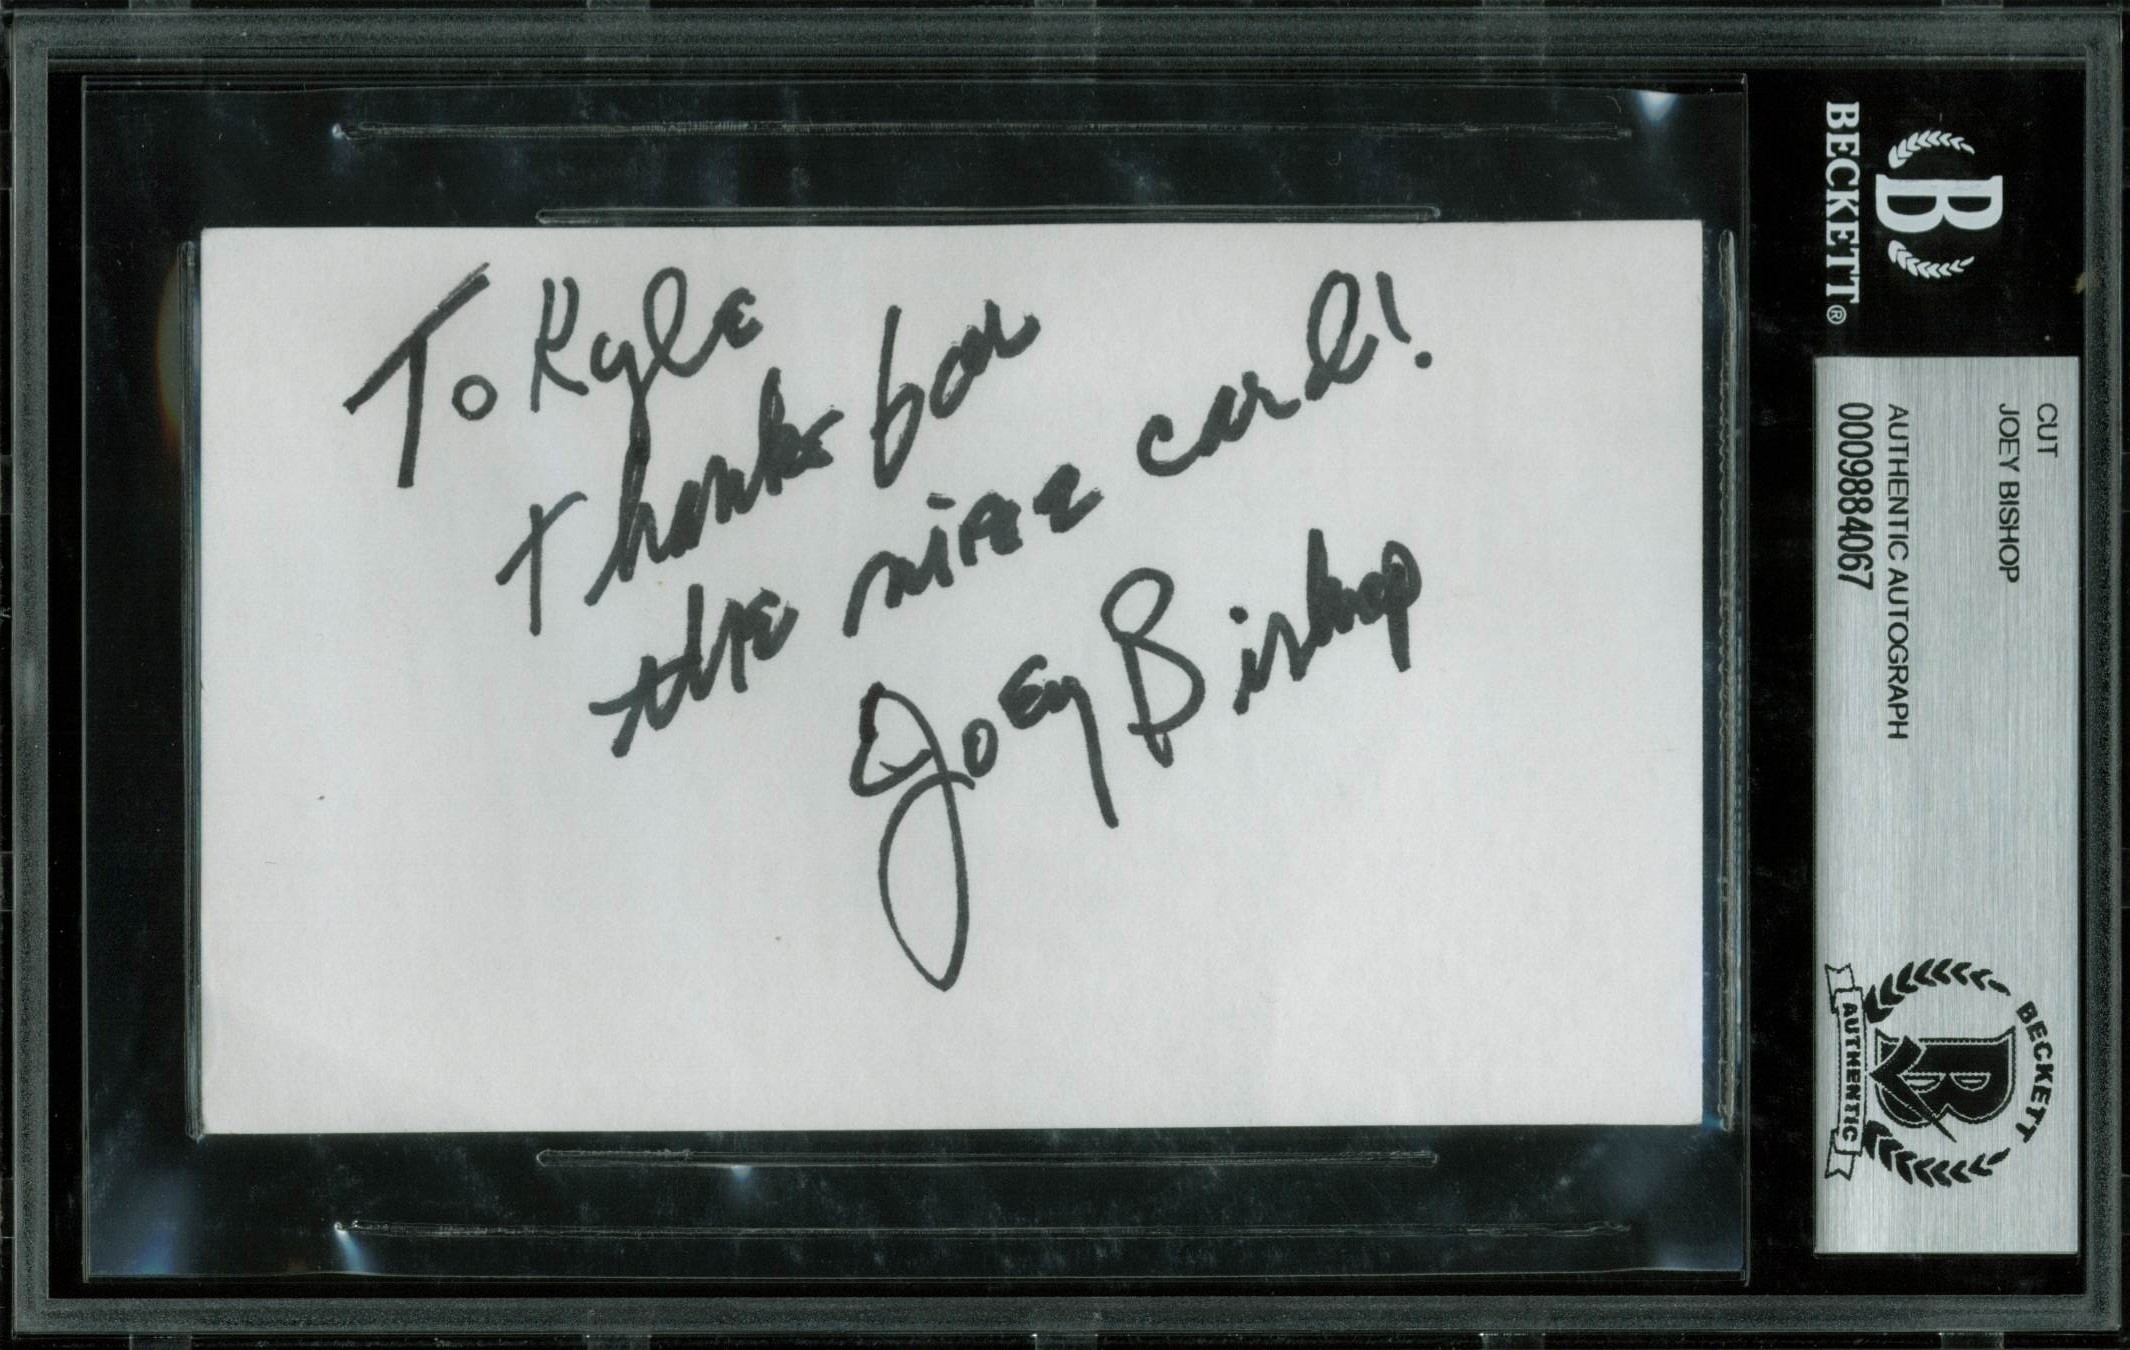 To Kyle
Thanks for
the nice card!
Joey Bishop
BECKETT®
B
CUT
JOEY BISHOP
AUTHENTIC AUTOGRAPH
00009884067
BECKETT
B
AUTHENTIC